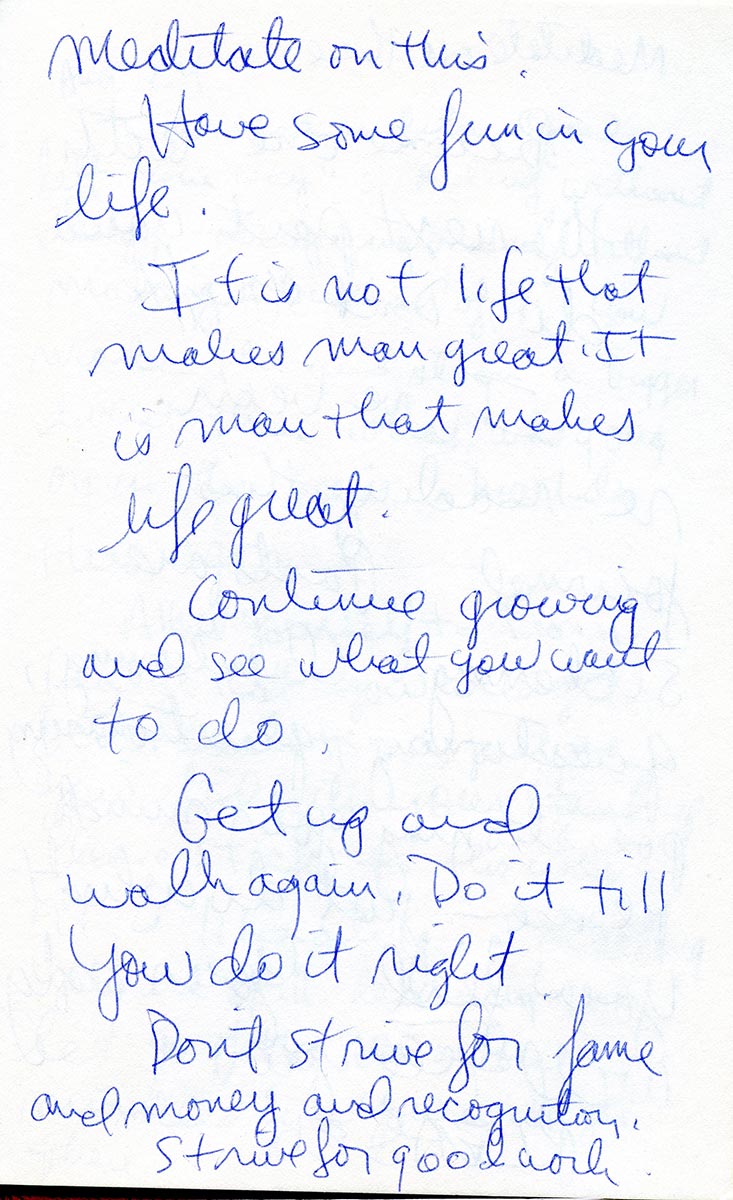 Meditate on this.
Have some fun in your
life.
It is not life that
makes man great. It
is man that makes
life great.
Continue growing
and see what you want
to do.
Get up and
walk again. Do it till
you do it right
Don't strive for fame
and money and recognition.
Strive for good work.